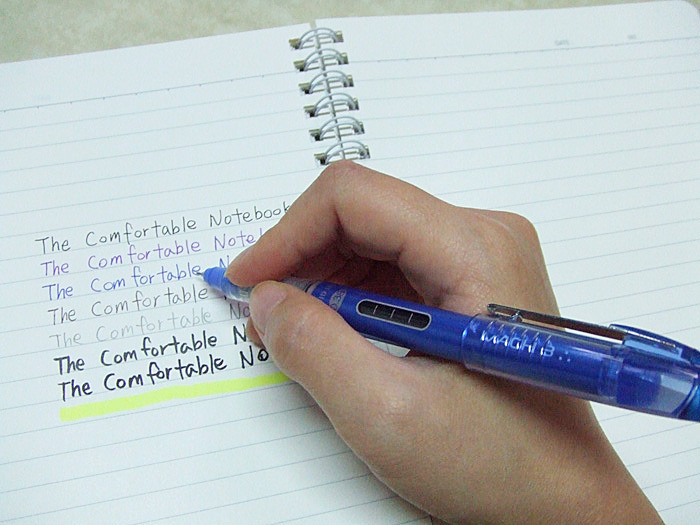 The Comfortable Notebook
The Comfortable Noteb
The Comfortable N
The Comfortable
The Comfortable No
The Comfortable N
The Comfortable No